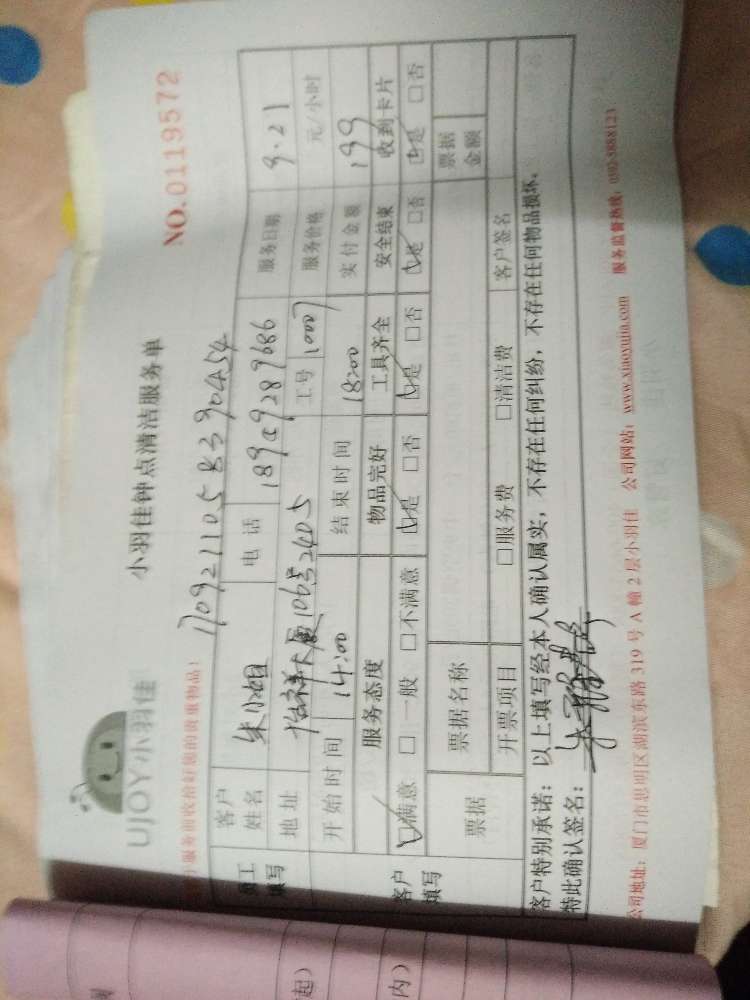 UJOY小羽佳
小羽佳钟点清洁服务单
NO.0119572
服务前收拾好您的贵重物品！
1709211058390454
客户姓名 朱小姐 电话 18909289686 服务日期 9.21
地址 怡祥大厦106号2405 工号 10007 服务价格 元/小时
开始时间 14:00 结束时间 18:00 实付金额 199
填写
服务态度 物品完好 工具齐全 安全结束 收到卡片
客户填写
☑满意 □一般 □不满意 ☑是 □否 ☑是 □否 ☑是 □否 ☑是 □否
票据 票据名称 票据金额
开票项目 □服务费 □清洁费 客户签名
客户特别承诺：以上填写经本人确认属实，不存在任何纠纷，不存在任何物品损坏。
特此确认签名：
公司地址：厦门市思明区湖滨东路319号A幢2层小羽佳 公司网站：www.xiaoyujia.com 服务监督热线：0592-5888123
起）
内）